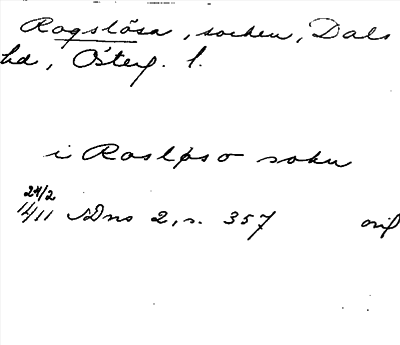 Rogslösa, socken, Dals
hd, Österg. l.
i Rosløso sokn
24/2
1411 SDns 2, s. 357 orig